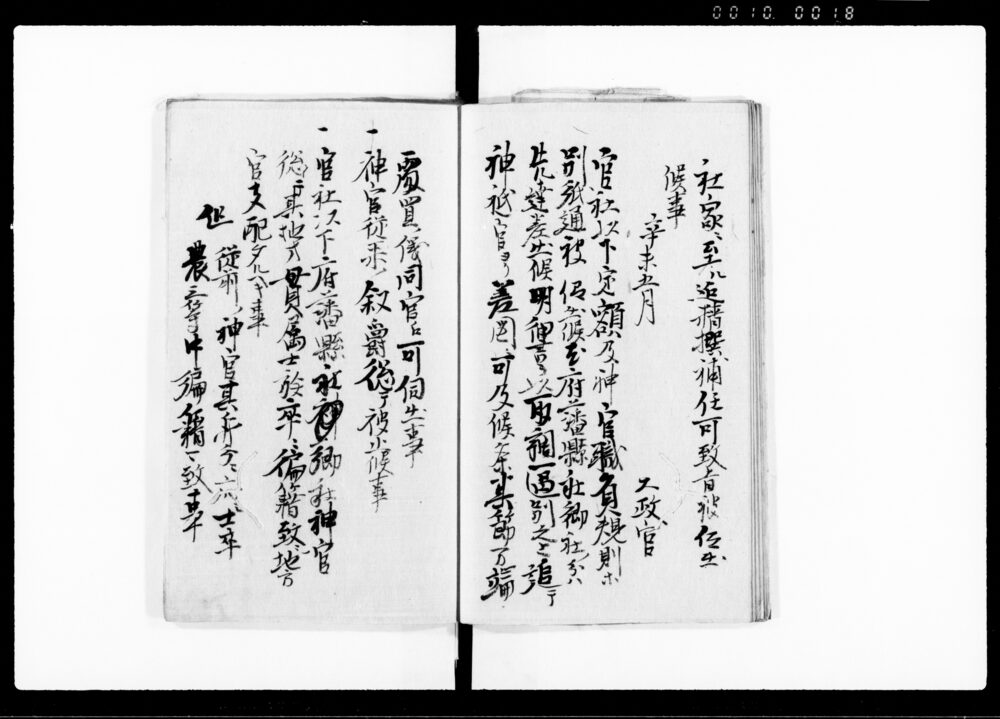 0010 0018
社家ニ至ル迄精撰補任可致旨被仰出
候事
辛未五月
太政官
官社以下定額及神官職員規則等
別紙通被仰出候尤府藩縣社郷社分ハ
先達差出候明細書ヲ以取調區別之上追テ
神祇官ヨリ差図ニ可及候条其節万端
処置ノ儀同官ヘ可伺出事
一神官従来ノ叙爵総テ被止候事
一官社以下府藩縣社郷社神官
総テ其地方貫属士族卒ニ編籍致地方
官支配タルヘキ事
但従前ノ神官其所分ニ応シ士卒
農ニ等ニ編籍可致事